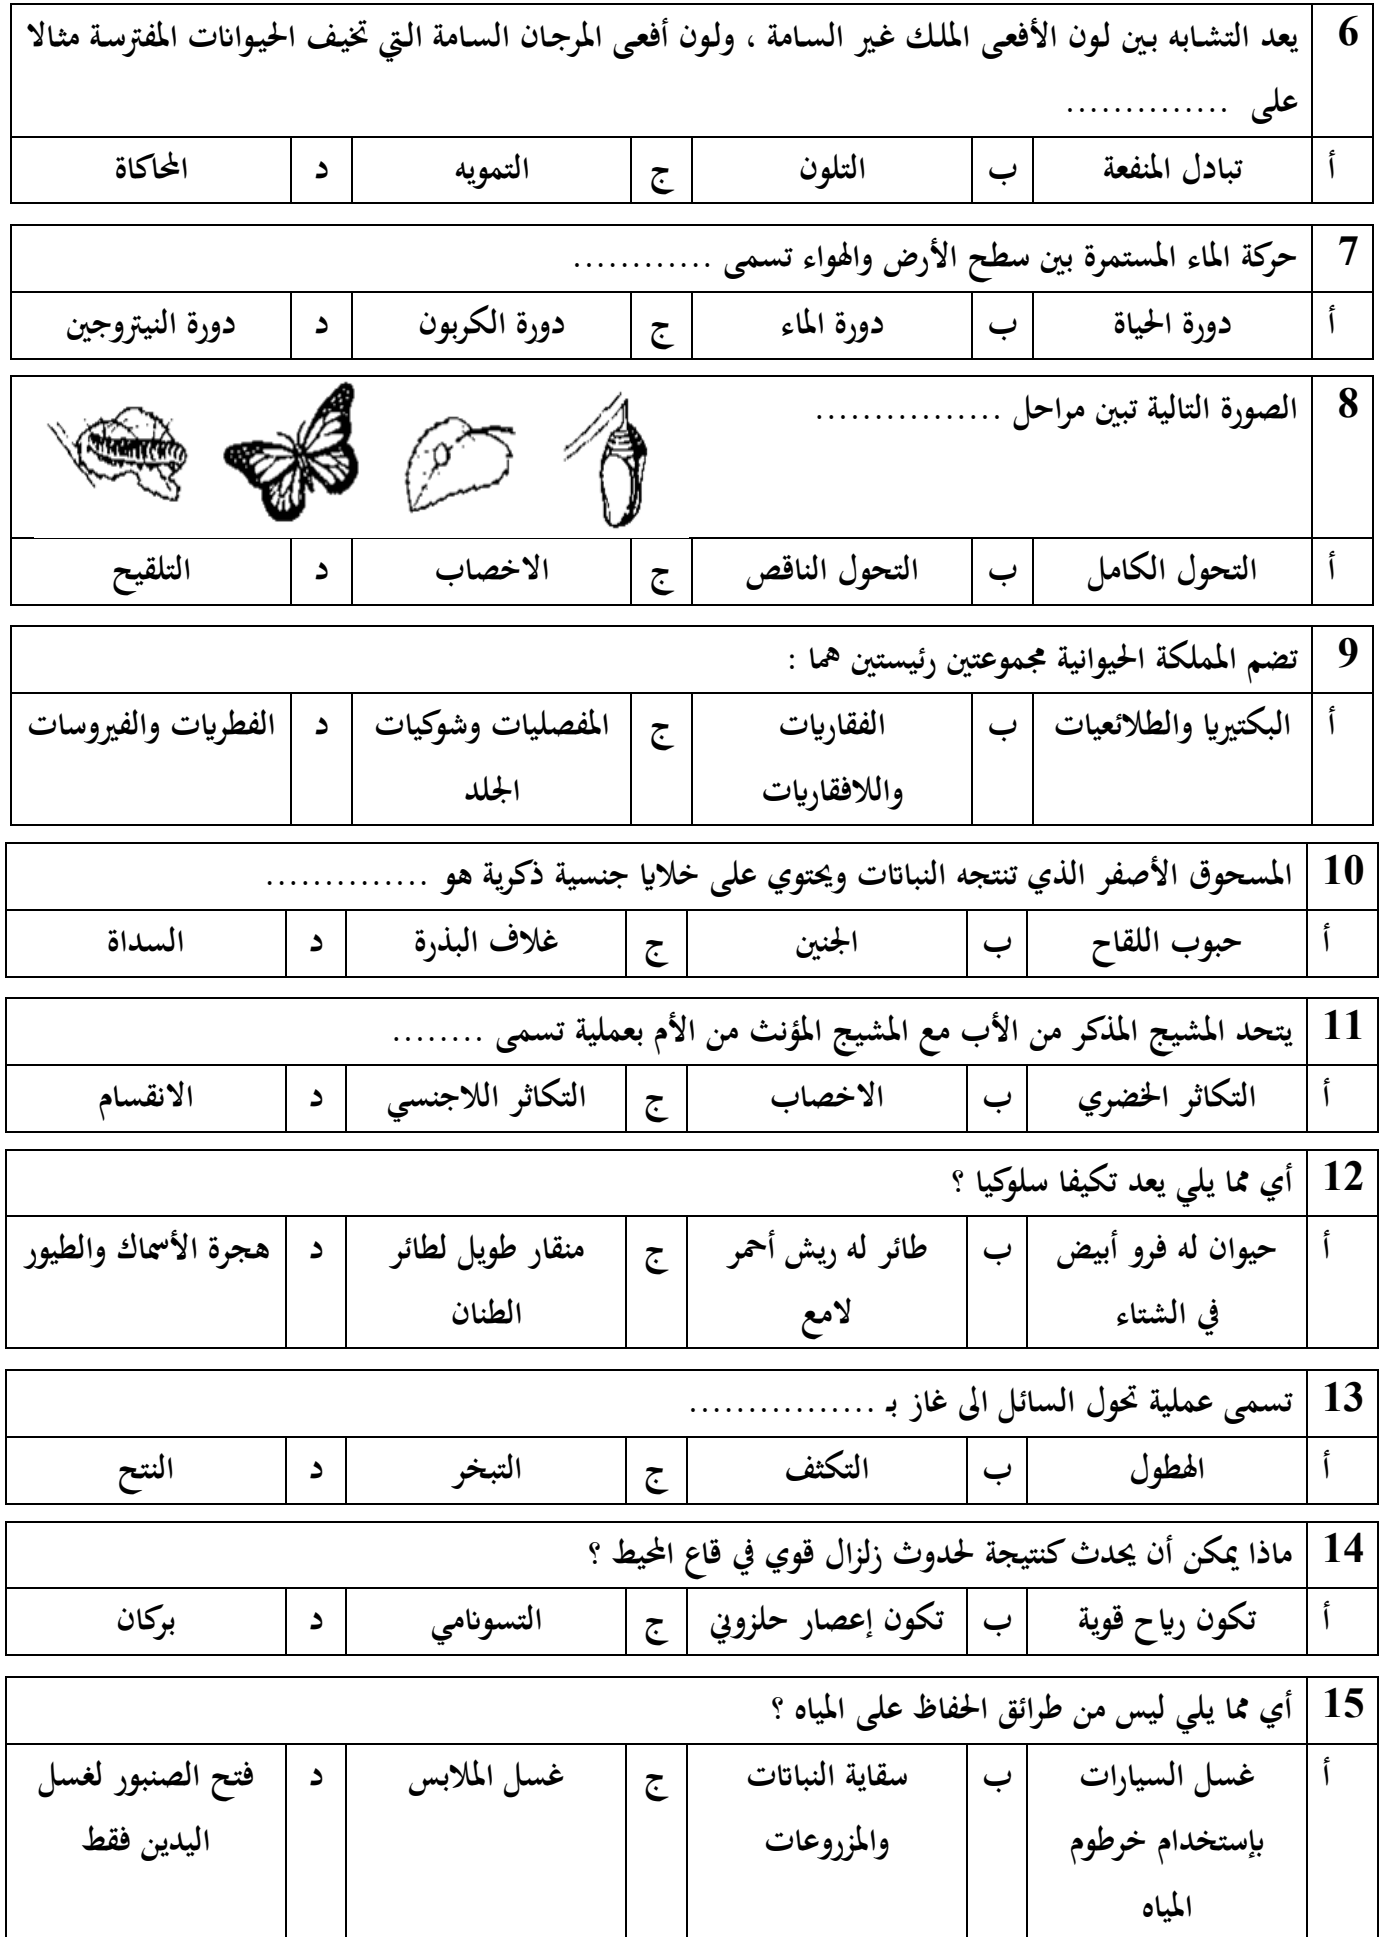 6 يعد التشابه بين لون الأفعى الملك غير السامة ، ولون أفعى المرجان السامة التي تخيف الحيوانات المفترسة مثالا
على ..............
أ تبادل المنفعة ب التلون ج التمويه د المحاكاة
7 حركة الماء المستمرة بين سطح الأرض والهواء تسمى ............
أ دورة الحياة ب دورة الماء ج دورة الكربون د دورة النيتروجين
8 الصورة التالية تبين مراحل ................
أ التحول الكامل ب التحول الناقص ج الاخصاب د التلقيح
9 تضم المملكة الحيوانية مجموعتين رئيستين هما :
أ البكتيريا والطلائعيات ب الفقاريات ج المفصليات وشوكيات د الفطريات والفيروسات
واللافقاريات الجلد
10 المسحوق الأصفر الذي تنتجه النباتات ويحتوي على خلايا جنسية ذكرية هو ..............
أ حبوب اللقاح ب الجنين ج غلاف البذرة د السداة
11 يتحد المشيج المذكر من الأب مع المشيج المؤنث من الأم بعملية تسمى ........
أ التكاثر الخضري ب الاخصاب ج التكاثر اللاجنسي د الانقسام
12 أي مما يلي يعد تكيفا سلوكيا ؟
أ حيوان له فرو أبيض ب طائر له ريش أحمر ج منقار طويل لطائر د هجرة الأسماك والطيور
في الشتاء لامع الطنان
13 تسمى عملية تحول السائل الى غاز بـ ................
أ الهطول ب التكثف ج التبخر د النتح
14 ماذا يمكن أن يحدث كنتيجة لحدوث زلزال قوي في قاع المحيط ؟
أ تكون رياح قوية ب تكون إعصار حلزوني ج التسونامي د بركان
15 أي مما يلي ليس من طرائق الحفاظ على المياه ؟
أ غسل السيارات ب سقاية النباتات ج غسل الملابس د فتح الصنبور لغسل
بإستخدام خرطوم والمزروعات اليدين فقط
المياه